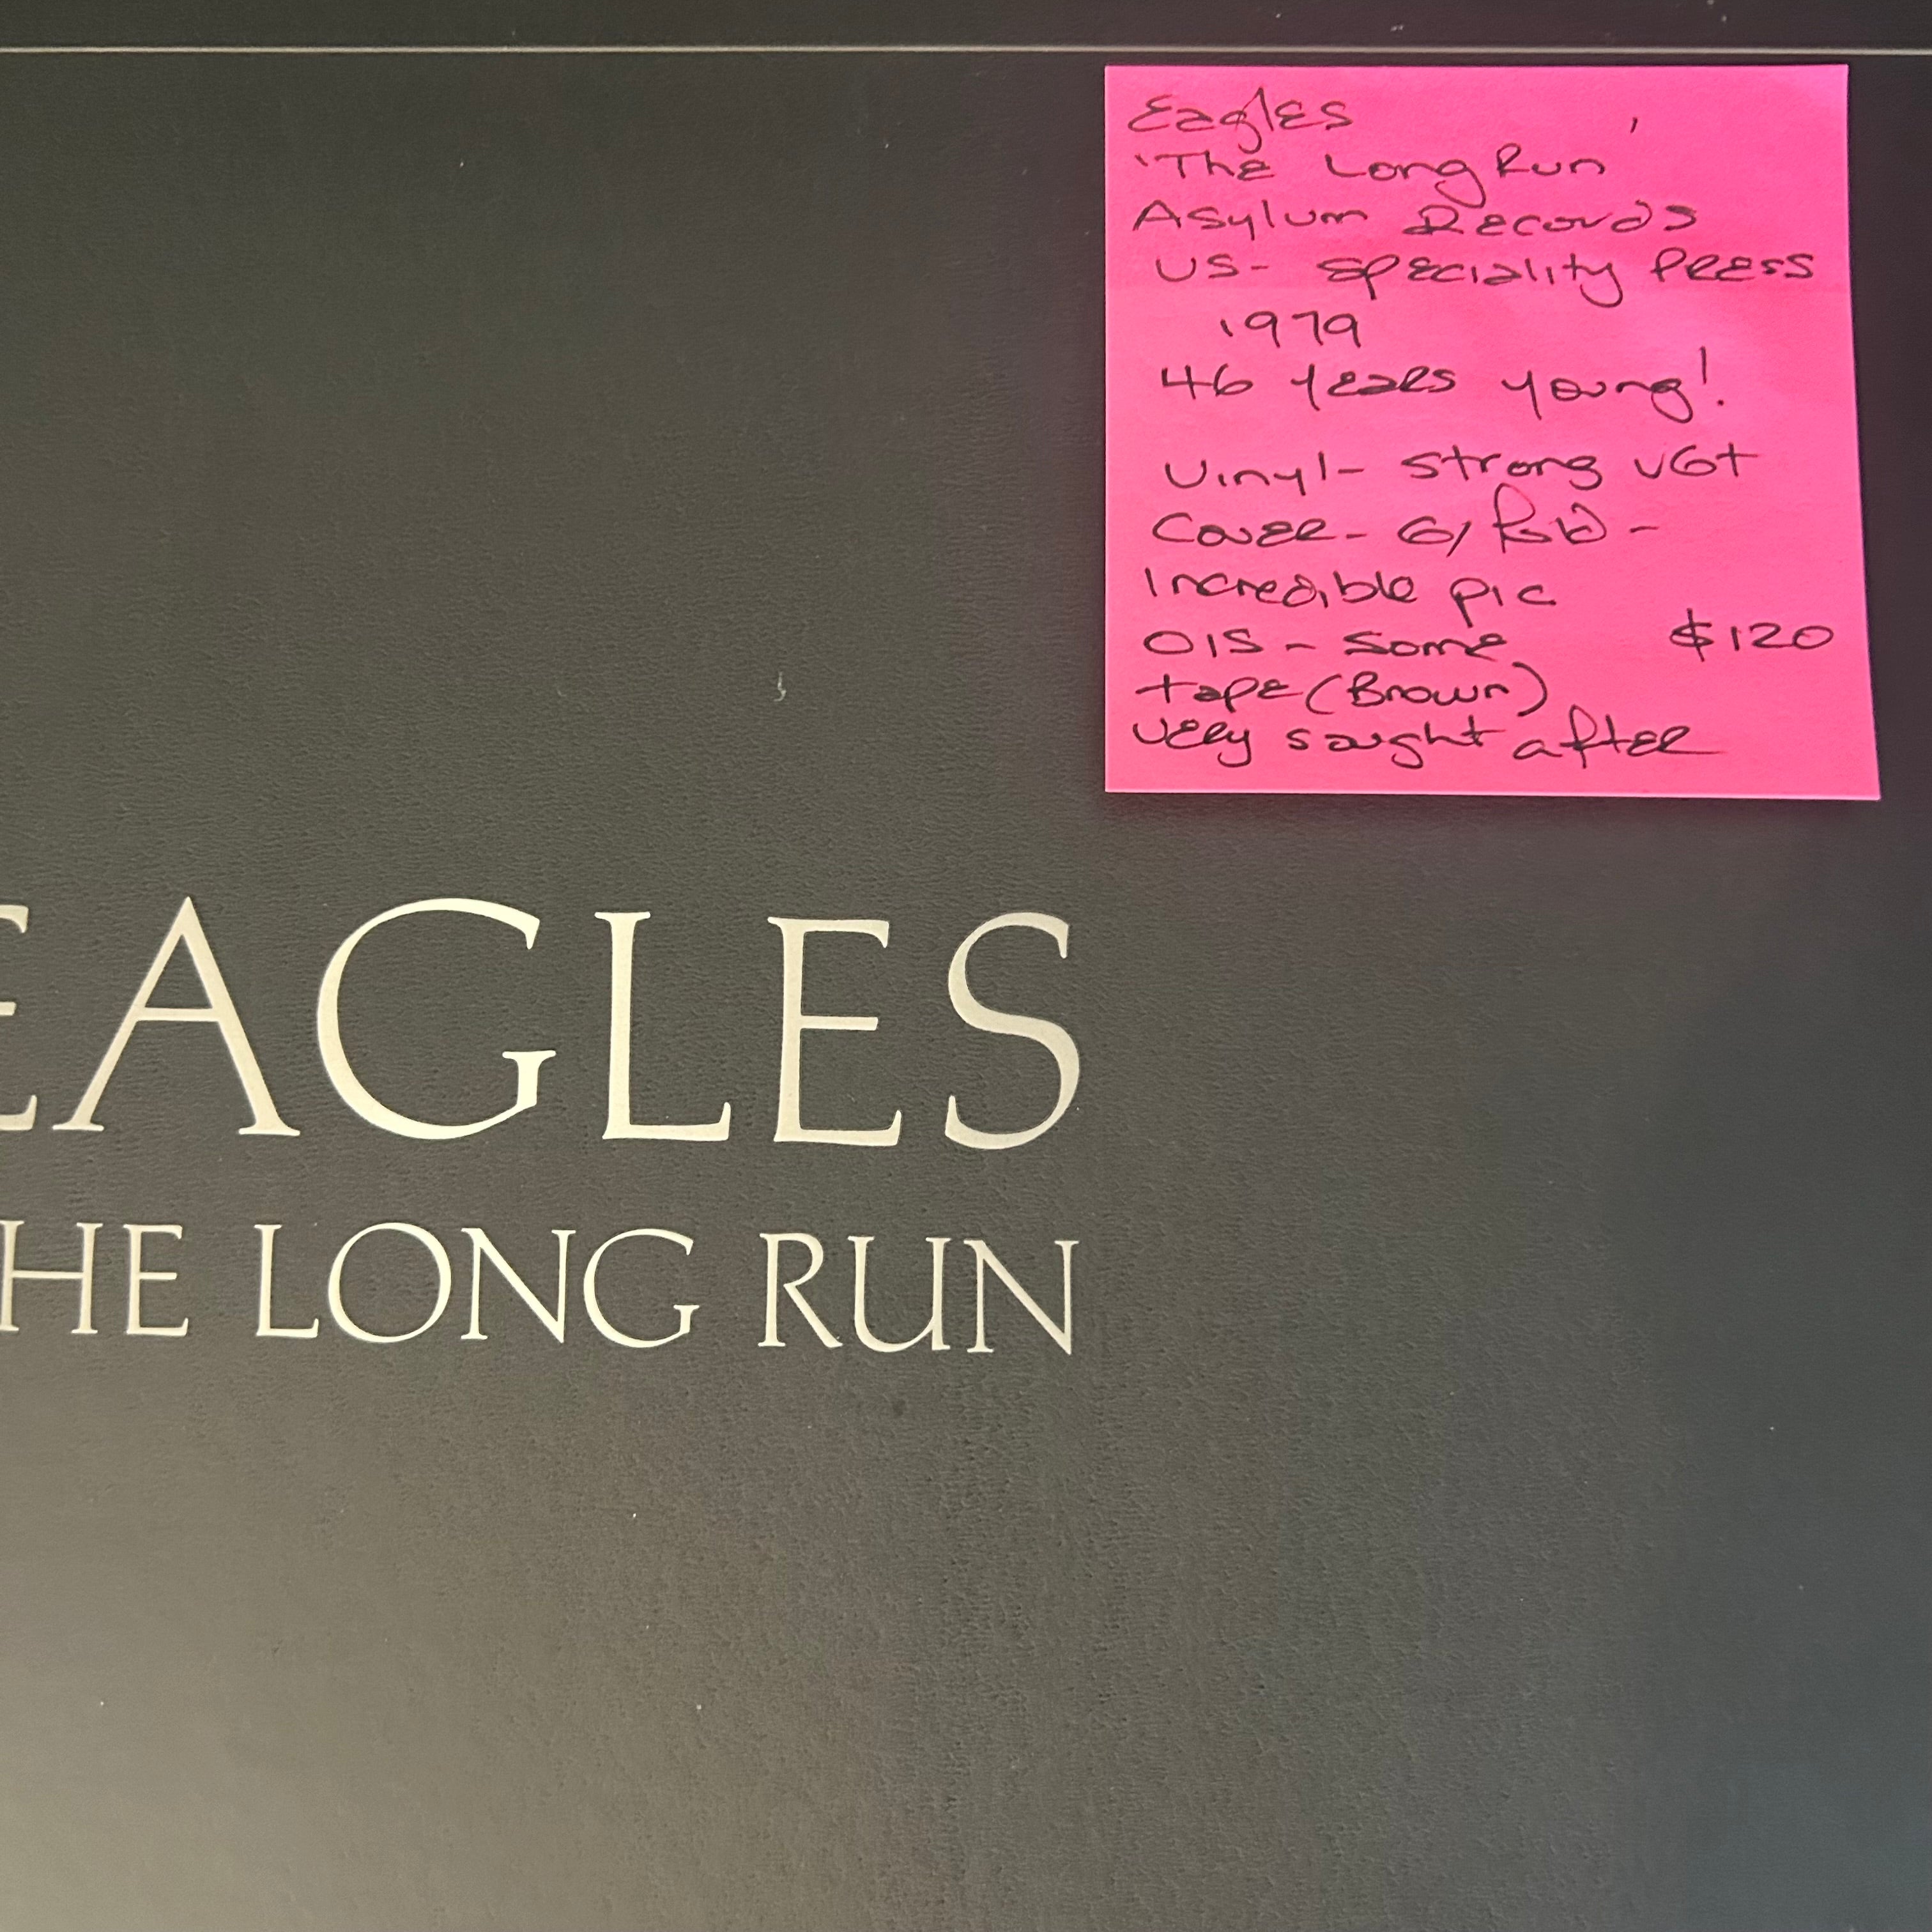 Eagles
'The Long Run'
Asylum Records
US- Speciality Press
1979
46 years young!
Vinyl- strong VG+
Cover- G/
Incredible pic
OIS - Some $120
tape (Brown)
Very sought after
EAGLES
HE LONG RUN